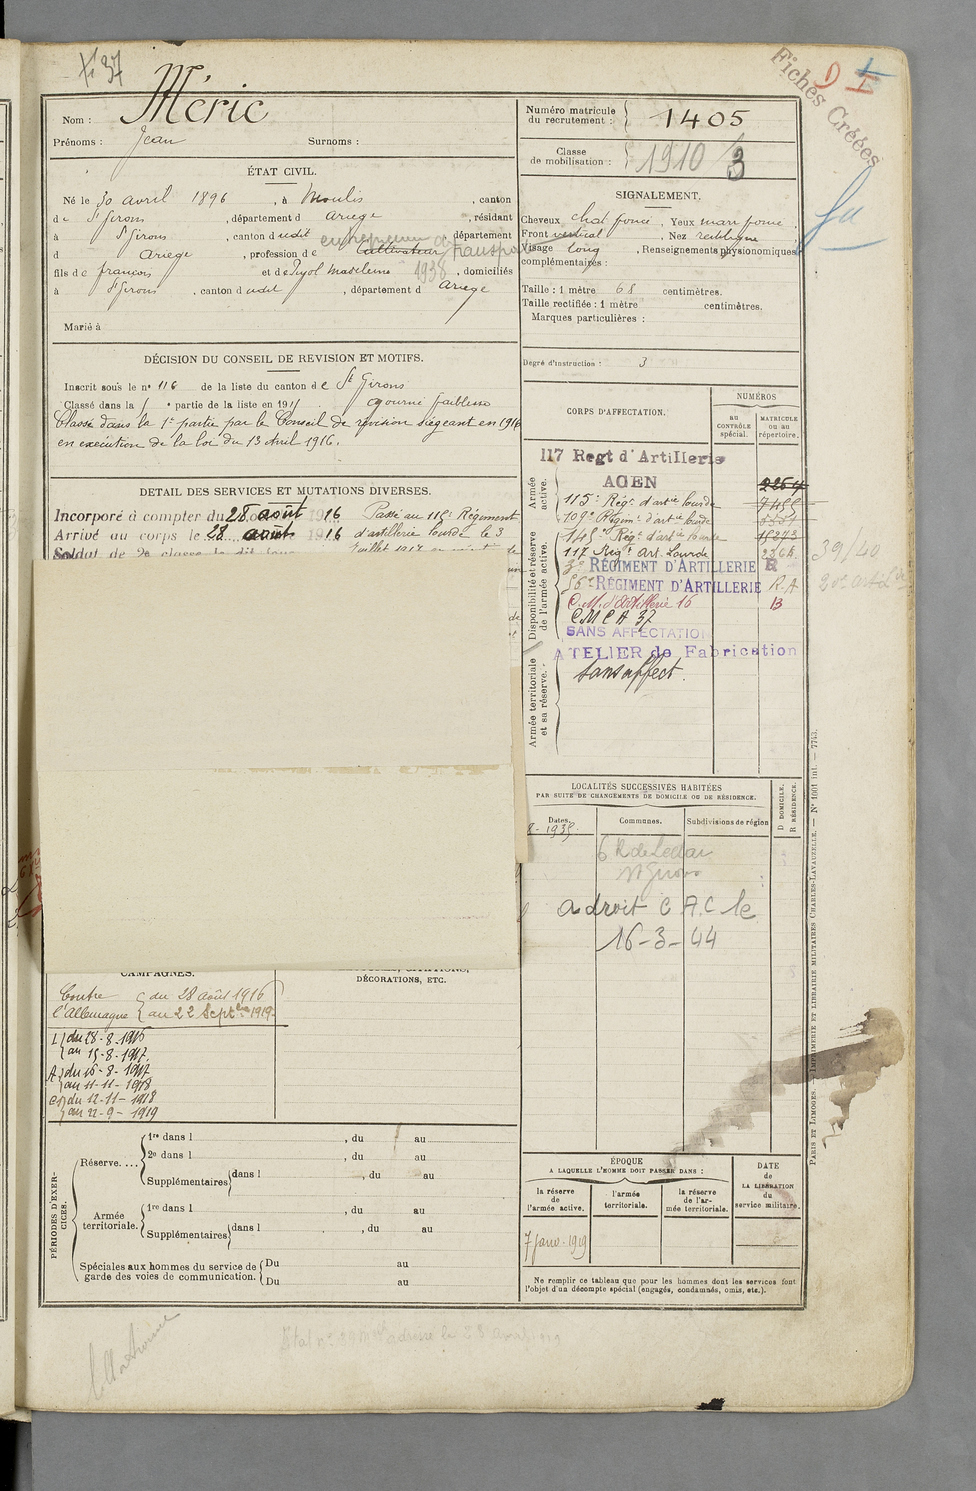 Fiches Créées
Nom : Méric
Prénoms : Jean Surnoms :
ÉTAT CIVIL.
Né le 30 avril 1896, à Moulis, canton
de St Girons, département d Ariege, résidant
à St Girons, canton dudit, département
d Ariege, profession de Cultivateur
fils de françois et de Pujol Madeleine 1938, domiciliés
à St Girons, canton dudit, département d Ariege
Marié à
DÉCISION DU CONSEIL DE REVISION ET MOTIFS.
Inscrit sous le n° 116 de la liste du canton de St Girons
Classé dans la 5 e partie de la liste en 1915 ajourné faiblesse
Classé dans la 1e partie par le Conseil de révision siégeant en 1916
en exécution de la loi du 13 Avril 1916.
DÉTAIL DES SERVICES ET MUTATIONS DIVERSES.
Incorporé à compter du 28 août 1916 Passé au 115e Régiment
Arrivé au corps le 28 août 1916 d'artillerie lourde le 3
Soldat de 2e classe le dit jour
CAMPAGNES.
DÉCORATIONS, ETC.
Contre du 28 août 1916
l'Allemagne au 22 Septbre 1919
du 28-8-1916
au 15-8-1917
A du 16-8-1917
au 11-11-1918
du 12-11-1918
au 22-9-1919
PÉRIODES D'EXERCICES.
Réserve....
1re dans l , du au
2e dans l , du au
Supplémentaires dans l , du au
Armée territoriale.
1re dans l , du au
Supplémentaires dans l , du au
Spéciales aux hommes du service de garde des voies de communication.
Du au
Du au
Numéro matricule du recrutement : 1405
Classe de mobilisation : 1910
SIGNALEMENT.
Cheveux chat foncé, Yeux marr foncé,
Front vertical, Nez rectiligne
Visage long, Renseignements physionomiques
complémentaires :
Taille : 1 mètre 68 centimètres.
Taille rectifiée : 1 mètre centimètres.
Marques particulières :
Degré d'instruction : 3
CORPS D'AFFECTATION.
NUMÉROS
au CONTRÔLE spécial.
MATRICULE ou au répertoire.
Armée active.
Disponibilité et réserve de l'armée active.
Armée territoriale et sa réserve.
117 Regt d'Artillerie
AGEN
115e Régt d'artie lourde 7455
109e Régimt d'artie lourde
145e Régt d'artie lourde
117 Régt Art. Lourde
3e RÉGIMENT D'ARTILLERIE R
56e RÉGIMENT D'ARTILLERIE R.A
C.M. d'Artillerie 16 B
CMCA 37
SANS AFFECTATION
ATELIER de Fabrication
Sans affect.
39/40
LOCALITÉS SUCCESSIVES HABITÉES
PAR SUITE DE CHANGEMENTS DE DOMICILE OU DE RÉSIDENCE.
Dates. Communes. Subdivisions de région
D DOMICILE. R RÉSIDENCE.
a droit C A.C le
16-3-44
ÉPOQUE
A LAQUELLE L'HOMME DOIT PASSER DANS :
la réserve de l'armée active.
l'armée territoriale.
la réserve de l'armée territoriale.
DATE de LA LIBÉRATION du service militaire.
7 janv. 1919
Ne remplir ce tableau que pour les hommes dont les services font
l'objet d'un décompte spécial (engagés, condamnés, omis, etc.).
PARIS ET LIMOGES. — IMPRIMERIE ET LIBRAIRIE MILITAIRES CHARLES-LAVAUZELLE. — N° 1001 int. — 7743.